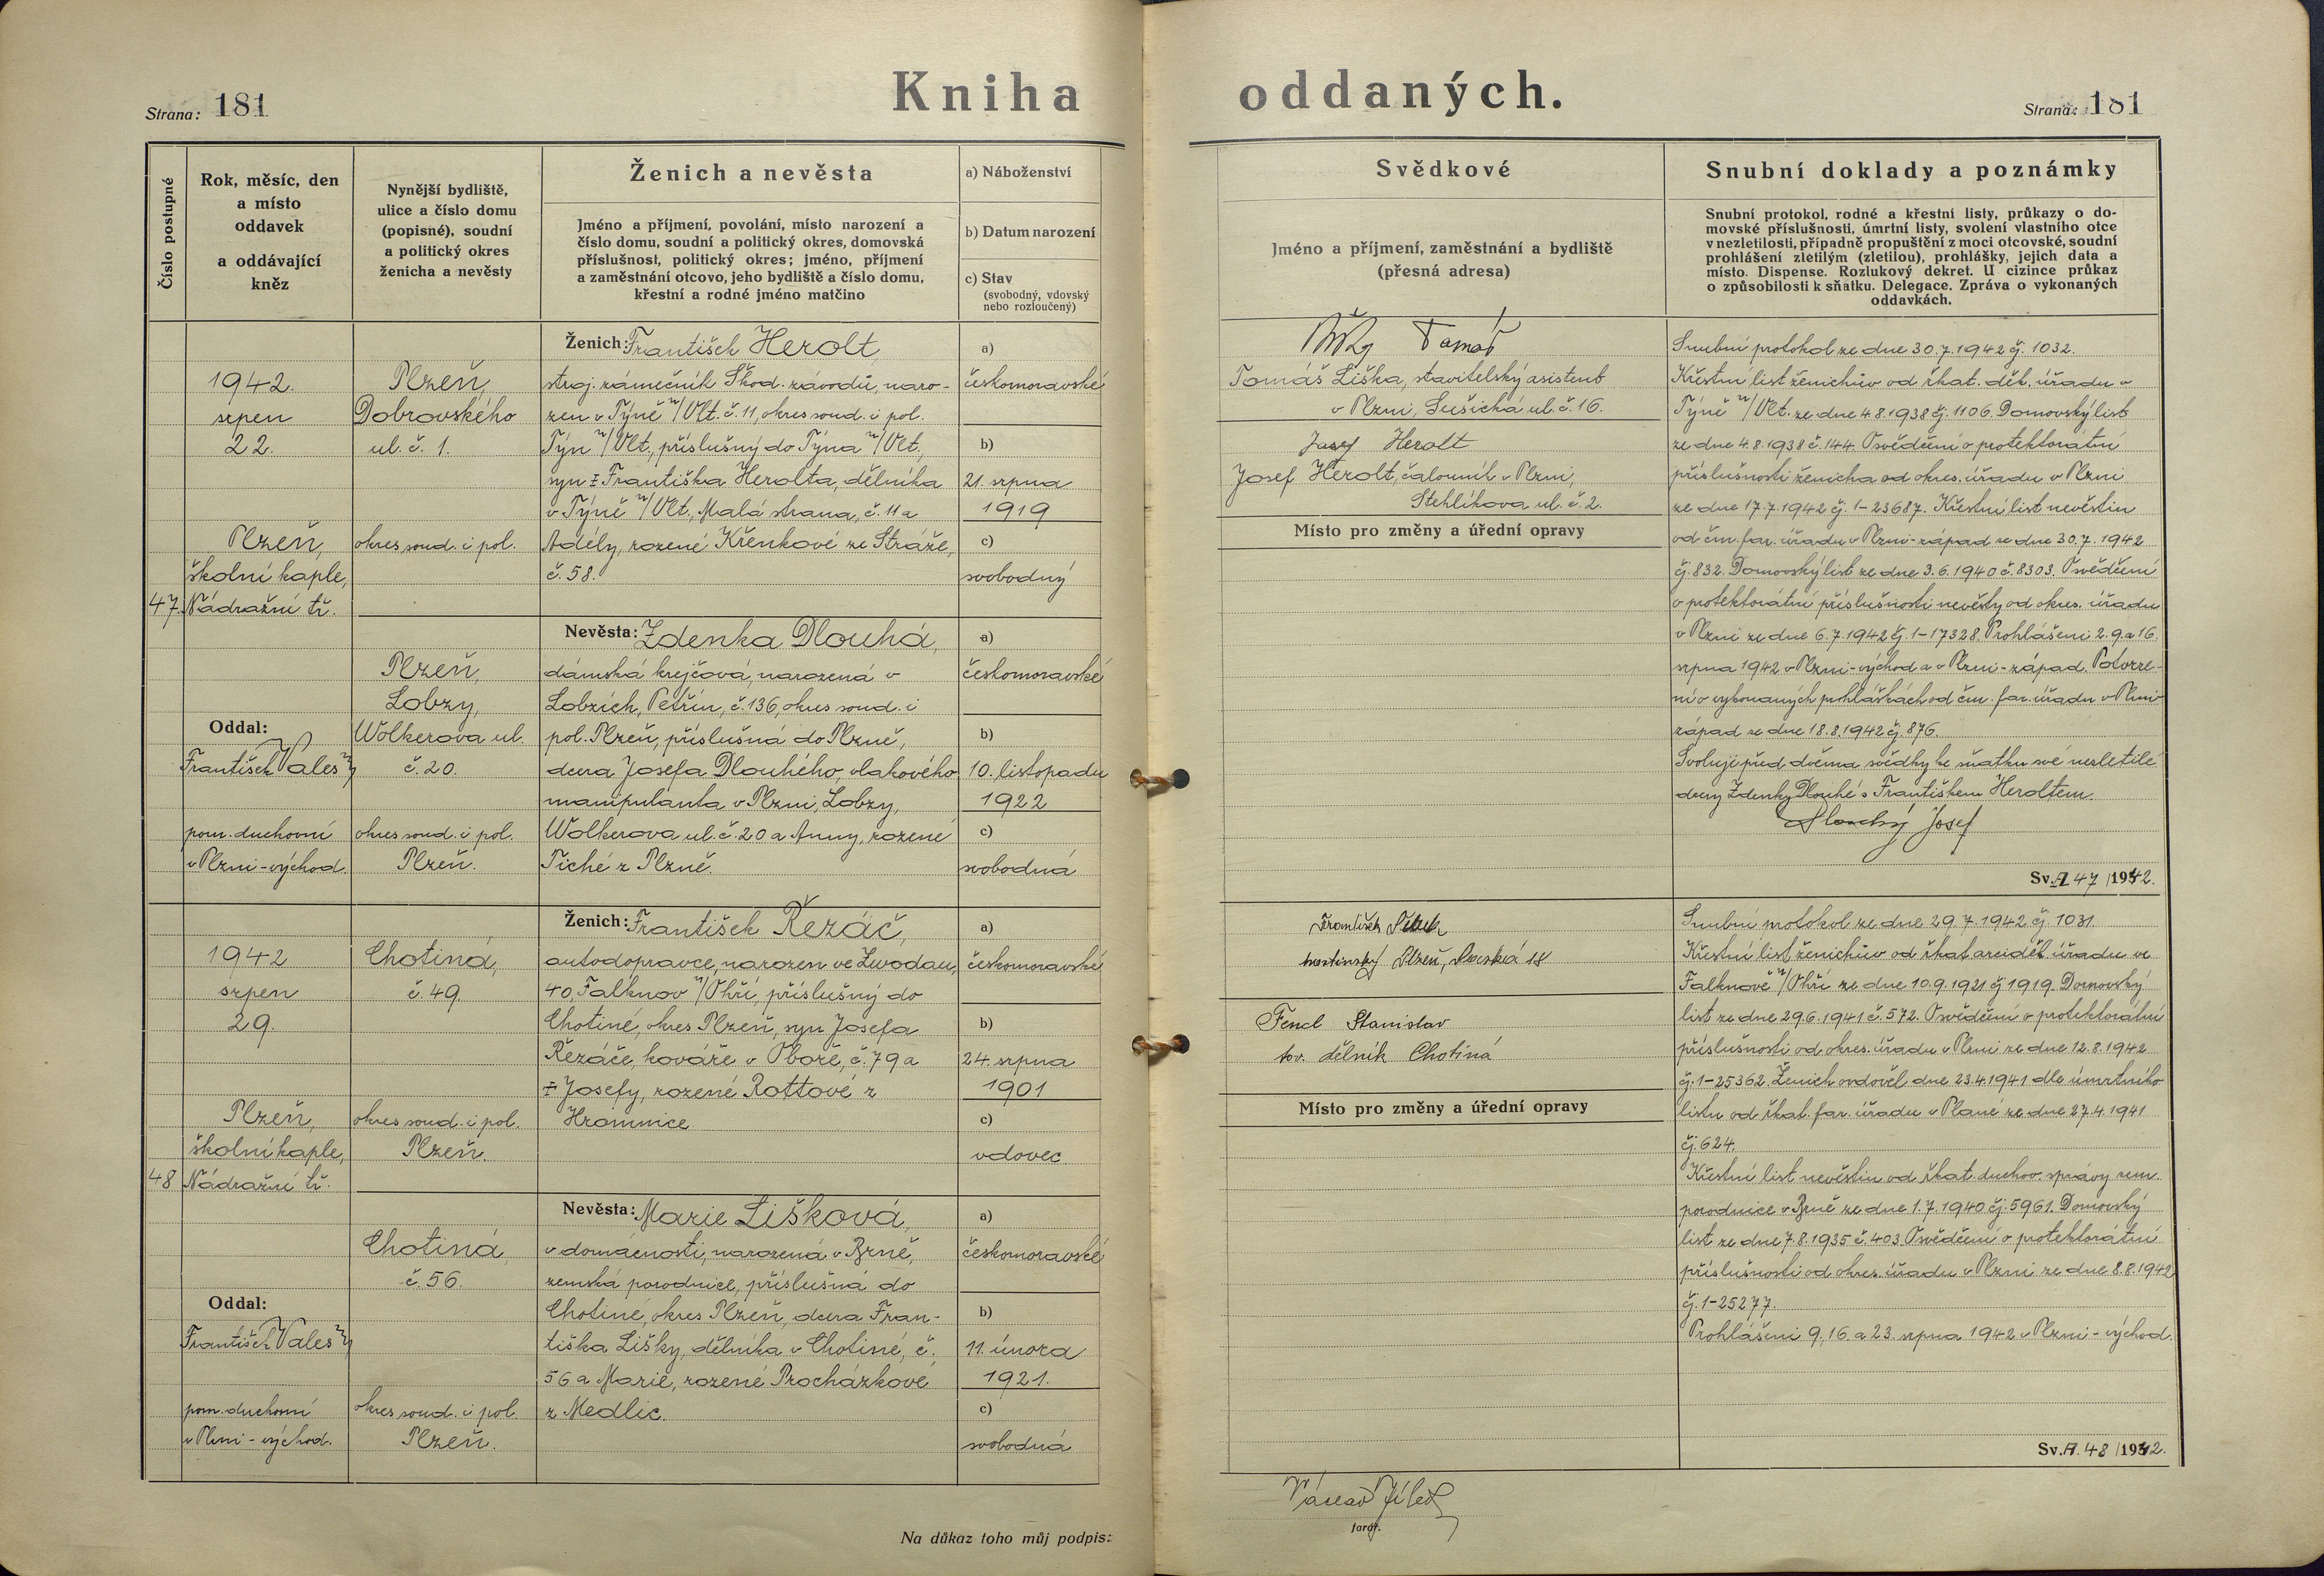 Strana: 181
Kniha oddaných.
Strana: 181
Číslo postupné
Rok, měsíc, den
a místo
oddavek
a oddávající
kněz
Nynější bydliště,
ulice a číslo domu
(popisné), soudní
a politický okres
ženicha a nevěsty
Ženich a nevěsta
Jméno a příjmení, povolání, místo narození a
číslo domu, soudní a politický okres, domovská
příslušnost, politický okres; jméno, příjmení
a zaměstnání otcovo, jeho bydliště a číslo domu,
křestní a rodné jméno matčino
a) Náboženství
b) Datum narození
c) Stav
(svobodný, vdovský
nebo rozloučený)
Svědkové
Jméno a příjmení, zaměstnání a bydliště
(přesná adresa)
Snubní doklady a poznámky
Snubní protokol, rodné a křestní listy, průkazy o do-
movské příslušnosti, úmrtní listy, svolení vlastního otce
v nezletilosti, případně propuštění z moci otcovské, soudní
prohlášení zletilým (zletilou), prohlášky, jejich data a
místo. Dispense. Rozlukový dekret. U cizince průkaz
o způsobilosti k sňatku. Delegace. Zpráva o vykonaných
oddavkách.
47.
1942.
srpen
22.
Plzeň,
školní kaple,
Nádražní tř.
Oddal:
František Valeš
pom. duchovní
v Plzni-východ.
Plzeň,
Dobrovského
ul. č. 1.
okres soud. i pol.
Plzeň,
Lobzy,
Wolkerova ul.
č. 20.
okres soud. i pol.
Plzeň.
Ženich: František Herolt,
stroj. zámečník Škod. závodů, naro-
zen v Týně n/Vlt. č. 11, okres soud. i pol.
Týn n/Vlt., příslušný do Týna n/Vlt.,
syn Františka Herolta, dělníka
v Týně n/Vlt., Malá strana, č. 11 a
Adély, rozené Křenkové ze Stráže,
č. 58.
Nevěsta: Zdenka Dlouhá,
dámská krejčová, narozená v
Lobzích, Petřín, č. 136, okres soud. i
pol. Plzeň, příslušná do Plzně,
dcera Josefa Dlouhého, vlakového
manipulanta v Plzni, Lobzy,
Wolkerova ul. č. 20 a Anny, rozené
Tiché z Plzně.
a)
českomoravské
b)
21. srpna
1919
c)
svobodný
a)
českomoravské
b)
10. listopadu
1922
c)
svobodná
Tomáš
Tomáš Liška, stavitelský asistent
v Plzni, Sušická ul. č. 16.
Josef Herolt
Josef Herolt, čalouník v Plzni,
Stehlíkova ul. č. 2.
Místo pro změny a úřední opravy
Snubní protokol ze dne 30.7.1942 čj. 1032.
Křestní list ženichův od řkat. děk. úřadu v
Týně n/Vlt. ze dne 4.8.1938 čj. 1106. Domovský list
ze dne 4.8.1938 č. 144. Osvědčení o protektorátní
příslušnosti ženicha od okres. úřadu v Plzni
ze dne 17.7.1942 čj. 1-23687. Křestní list nevěstin
od čm. far. úřadu v Plzni-západ ze dne 30.7.1942
čj. 832. Domovský list ze dne 3.6.1940 č. 8303. Osvědčení
o protektorátní příslušnosti nevěsty od okres. úřadu
v Plzni ze dne 6.7.1942 čj. 1-17328. Prohlášeni 2. 9. a 16.
srpna 1942 v Plzni-východ a v Plzni-západ. Potvrze-
ní o vykonaných prohláškách od čm. far. úřadu v Plzni-
západ ze dne 18.8.1942 čj. 876.
Svoluji před dvěma svědky ke sňatku své nezletilé
dcery Zdenky Dlouhé s Františkem Heroltem.
Dlouhý Josef
Sv. A 47 /1942.
48
1942
srpen
29.
Plzeň,
školní kaple,
Nádražní tř.
Oddal:
František Valeš
pom. duchovní
v Plzni-východ.
Chotiná,
č. 49.
okres soud. i pol.
Plzeň.
Chotiná,
č. 56.
okres soud. i pol.
Plzeň.
Ženich: František Řezáč,
autodopravce, narozen ve Zwodau,
40, Falknov n/Ohří, příslušný do
Chotiné, okres Plzeň, syn Josefa
Řezáče, kováře v Oboře, č. 79 a
Josefy, rozené Rottové z
Hromnice
Nevěsta: Marie Lišková,
v domácnosti, narozená v Brně,
zemská porodnice, příslušná do
Chotiné, okres Plzeň, dcera Fran-
tiška Lišky, dělníka v Chotiné, č.
56 a Marie, rozené Procházkové
z Medlic.
a)
českomoravské
b)
24. srpna
1901
c)
vdovec
a)
českomoravské
b)
11. února
1921.
c)
svobodná
František
Plzeň, 18
Fencl Stanislav
tov. dělník Chotiná
Místo pro změny a úřední opravy
Snubní protokol ze dne 29.7.1942 čj. 1031.
Křestní list ženichův od řkat. arciděk. úřadu ve
Falknově n/Ohří ze dne 10.9.1921 čj 1919. Domovský
list ze dne 29.6.1941 č. 572. Osvědčení o protektorátní
příslušnosti od okres. úřadu v Plzni ze dne 12.8.1942
čj. 1-25362. Ženich ovdověl dne 23.4.1941 dle úmrtního
listu od řkat. far. úřadu v Plané ze dne 27.4.1941
čj. 624.
Křestní list nevěstin od řkat. duchov. správy zem.
porodnice v Brně ze dne 1.7.1940 čj. 5961. Domovský
list ze dne 7.8.1935 č. 403. Osvědčení o protektorátní
příslušnosti od okres. úřadu v Plzni ze dne 8.8.1942
čj. 1-25277.
Prohlášeni 9., 16. a 23. srpna 1942 v Plzni-východ.
Sv. A. 48 /1942.
Na důkaz toho můj podpis:
Václav
farář.